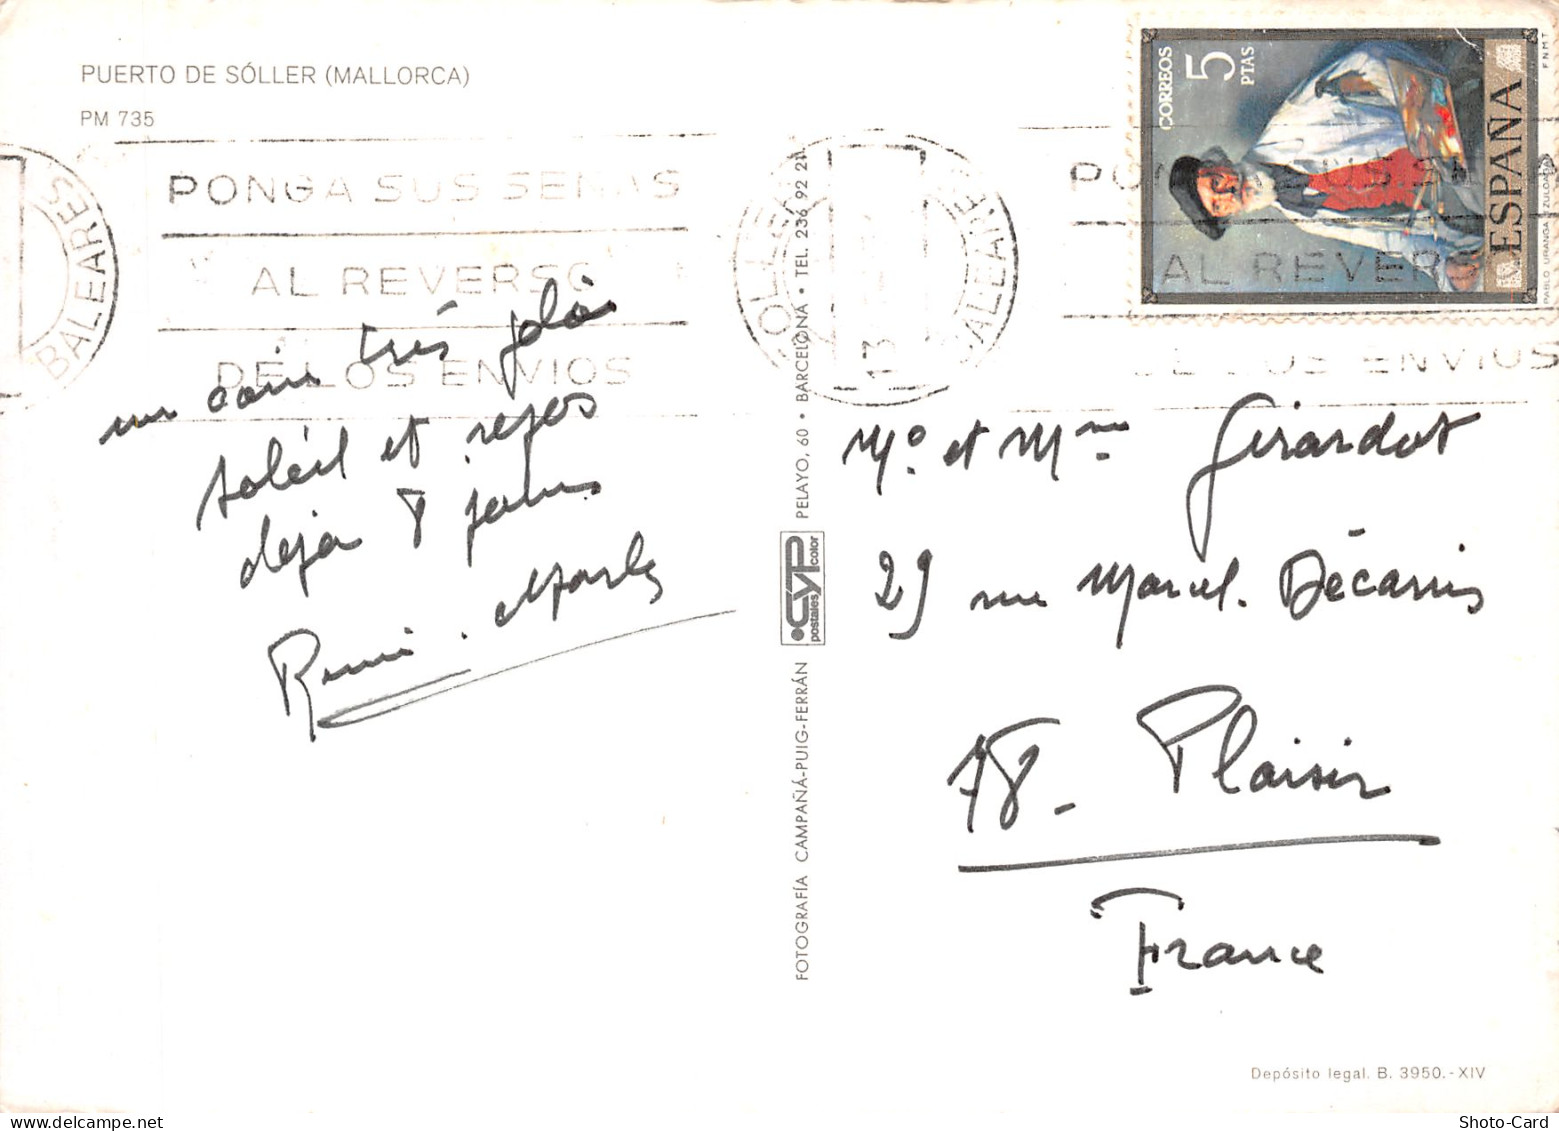 PUERTO DE SÓLLER (MALLORCA)
PM 735
BALEARES
PONGA SUS SEÑAS
AL REVERSO
DE LOS ENVIOS
un coin très joli
soleil et repos
deja 8 jours
FOTOGRAFÍA CAMPAÑÁ-PUIG-FERRÁN
postales CYP color
PELAYO, 60 • BARCELONA • TEL. 236 92 21
13
CORREOS
5 PTAS
ESPAÑA
PABLO URANGA ZULOAGA
F.N.M.T.
PONGA SUS SEÑAS
AL REVERSO
DE LOS ENVIOS
Mr et Mme Girardot
29 rue Marcel. Décarris
78 - Plaisir
France
Depósito legal. B. 3950.-XIV
Shoto-Card